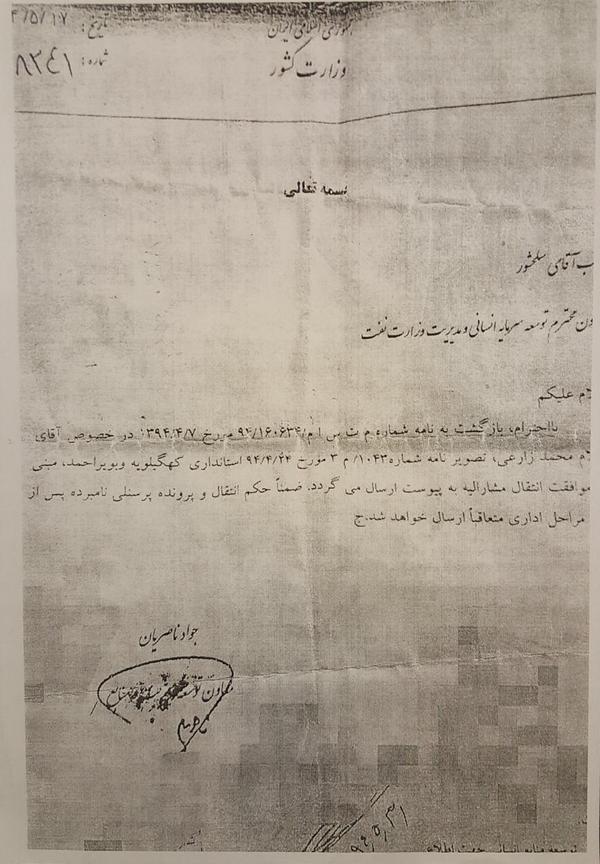 جمهوری اسلامی ایران
وزارت کشور
تاریخ : ۴/۵/۱۷
شماره : ۸۳۴۱
بسمه تعالی
ب آقای سلحشور
ون محترم توسعه سرمایه انسانی و مدیریت وزارت نفت
لام علیکم
بااحترام، بازگشت به نامه شماره م ت س ا م/۹۴/۱۶۰۶۳۴ مورخ ۱۳۹۴/۴/۷ در خصوص آقای
لام محمد زارعی، تصویر نامه شماره ۱۰۴۳/ م ۳ مورخ ۹۴/۴/۲۴ استانداری کهگیلویه وبویراحمد، مبنی
موافقت انتقال مشارالیه به پیوست ارسال می گردد. ضمناً حکم انتقال و پرونده پرسنلی نامبرده پس از
مراحل اداری متعاقباً ارسال خواهد شد.ج
جواد ناصریان
معاون توسعه مدیریت و منابع
۹۴/۵/۳۱
توسعه منابع انسانی جهت اطلاع